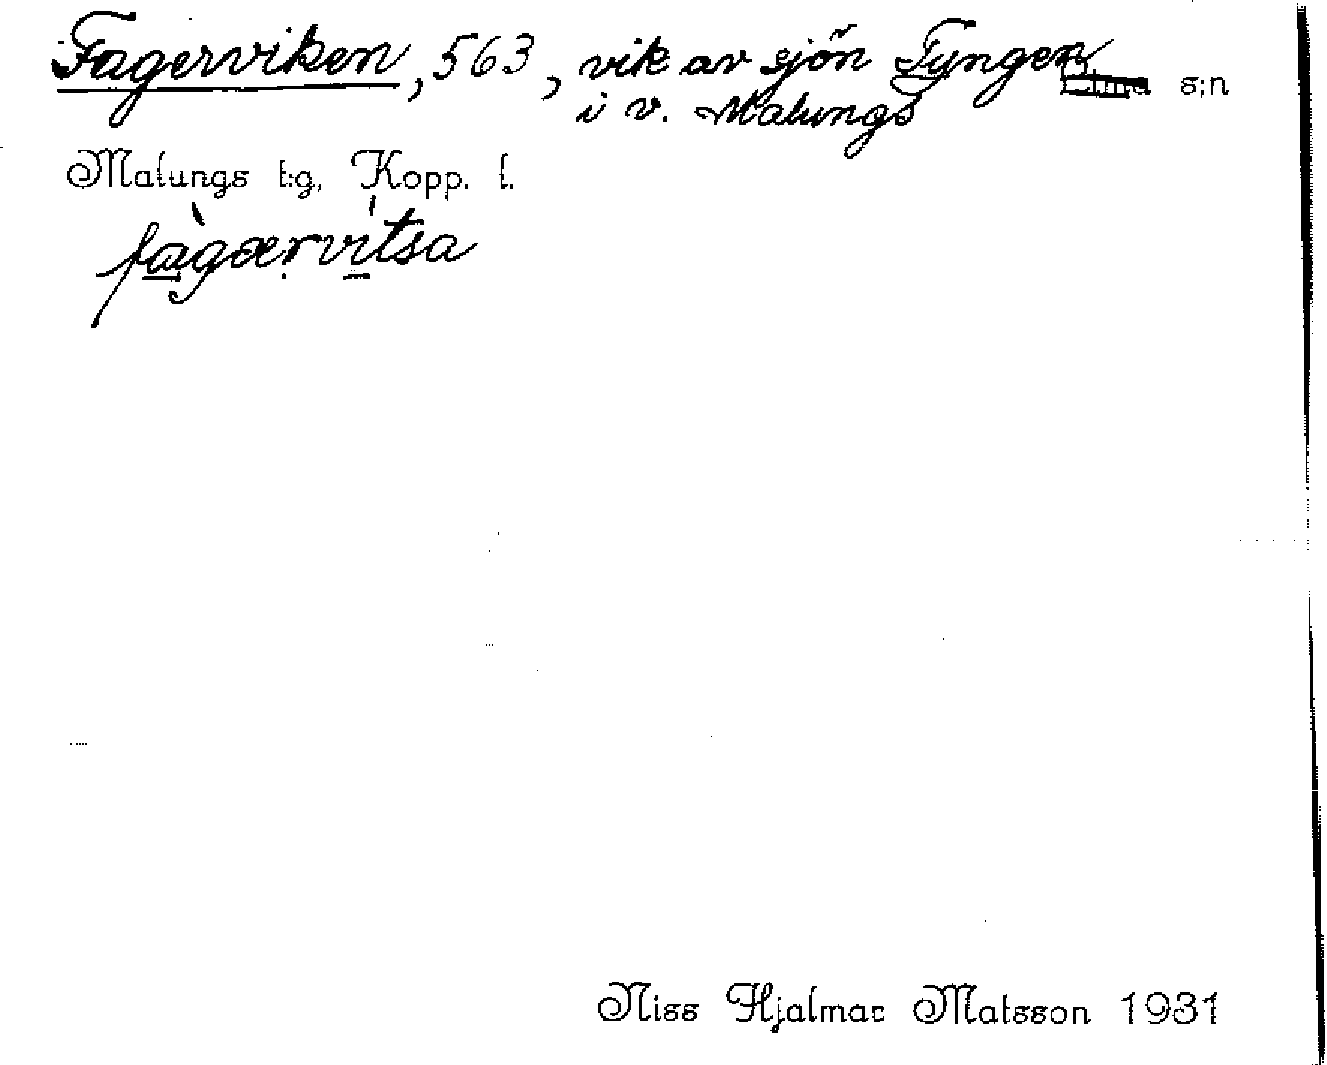 Fagerviken, 563, vik av sjön Tyngen s:n
i v. Malungs
Malungs t:g, Kopp. l.
fàgærvítsa
Niss Hjalmar Matsson 1931